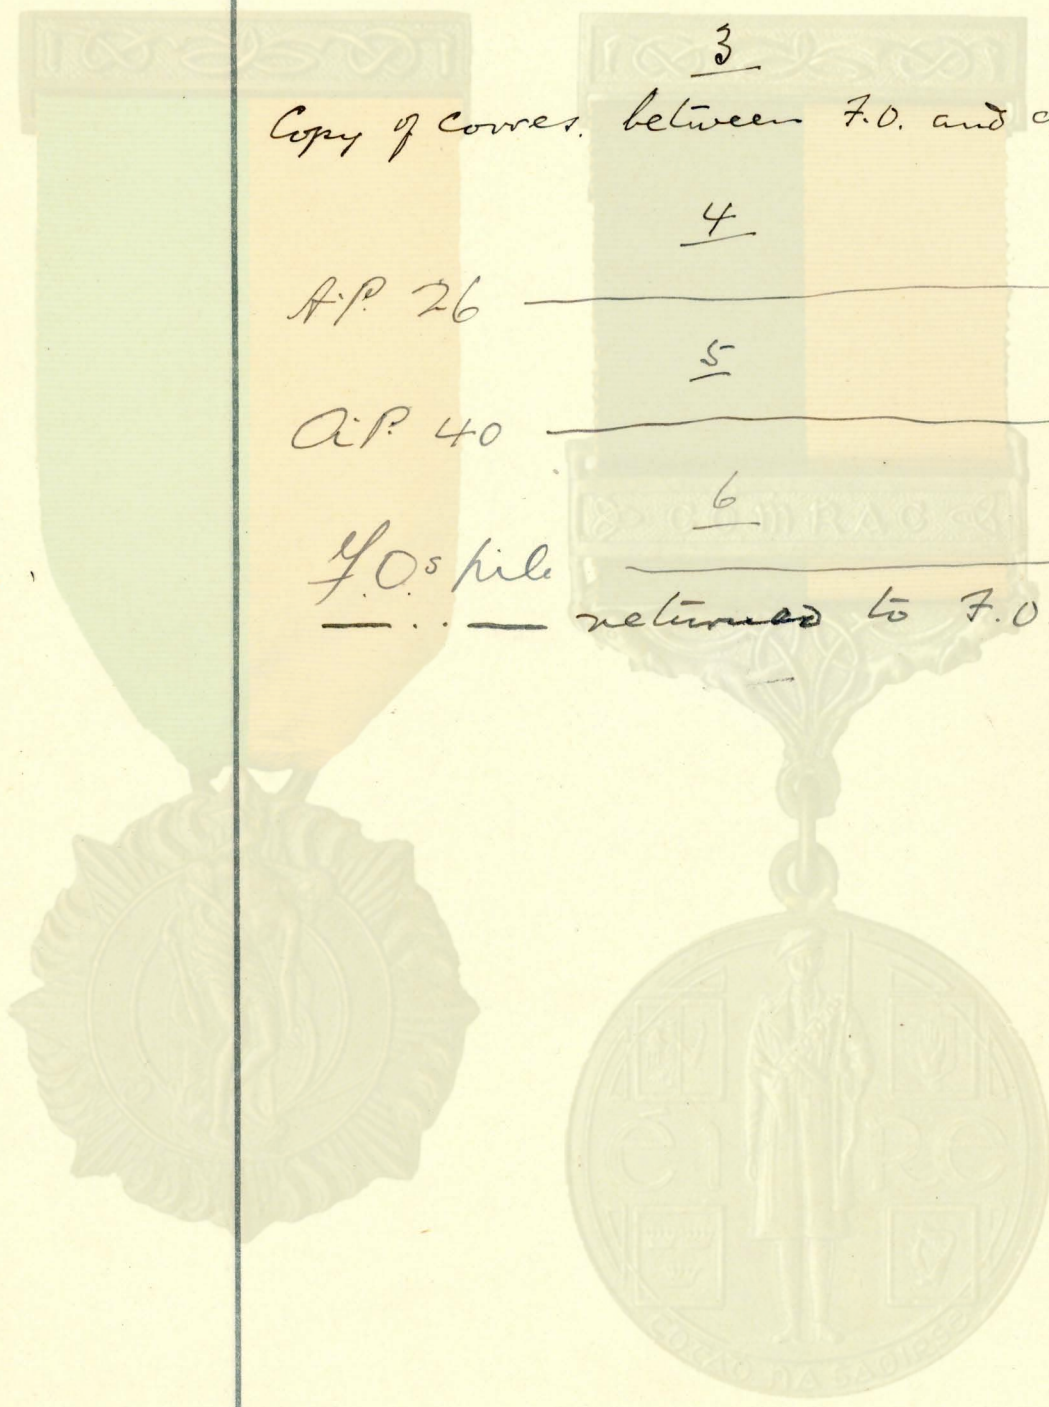 3
Copy of corres. between F.O. and
4
A.P. 26
5
A.P. 40
6
F.O.s file
— . . — returned to F.O
COMRAC
CI RC
COGAD NA SAOIRSE